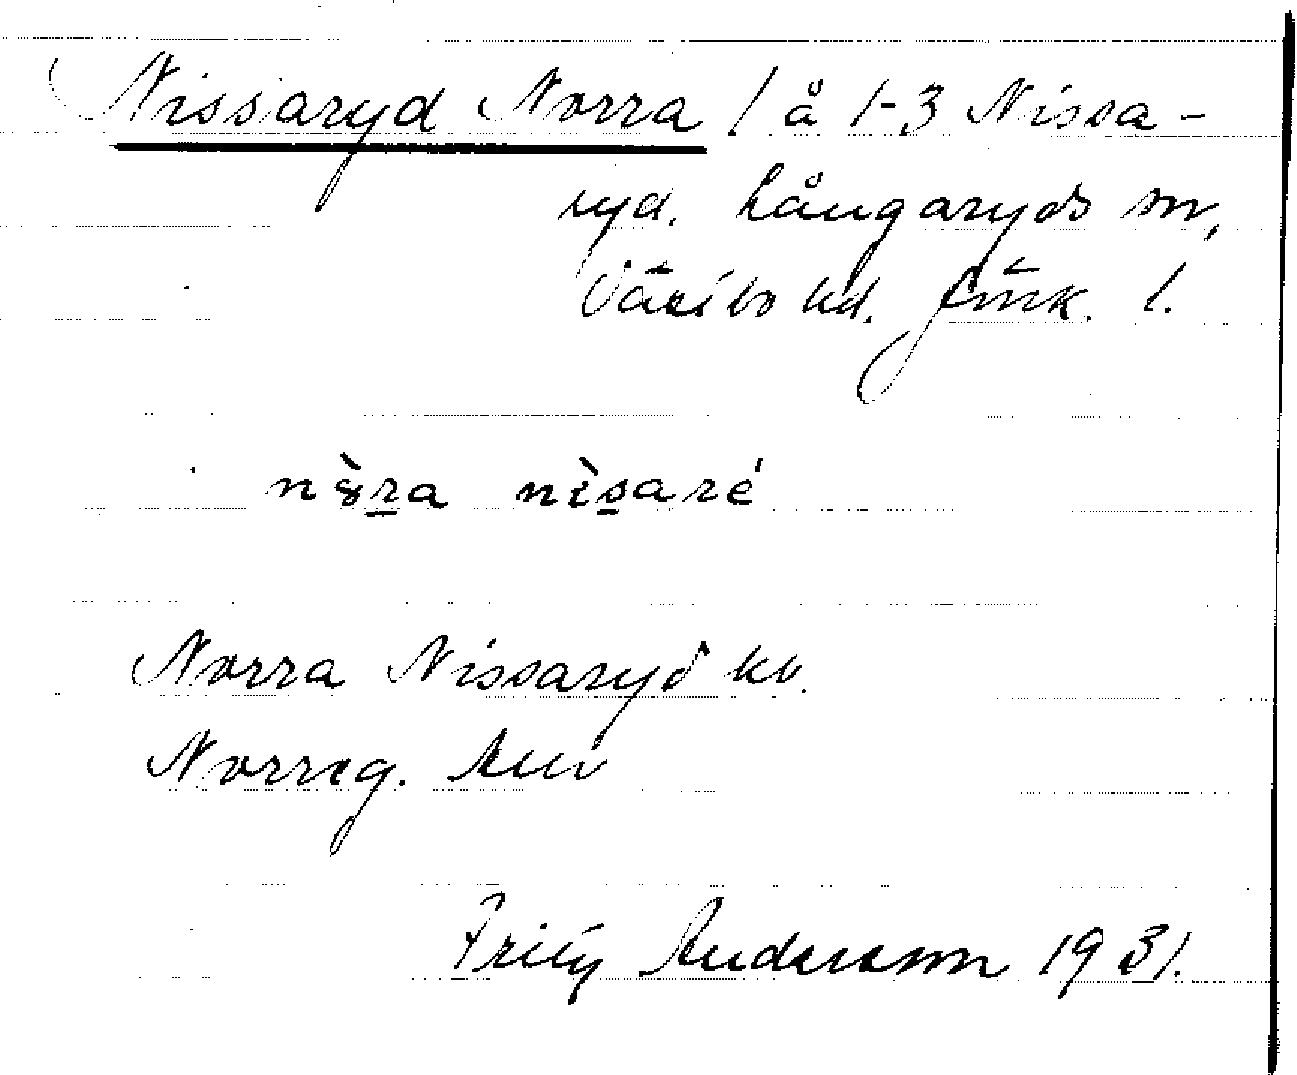 Nissaryd Norra / å 1-3 Nissa-
ryd. Långaryds sn,
Västbo hd. Jönk. l.
nȣ̀ra nìsaré
Norra Nissaryd kv.
Norreg.
Fritz Andersson 1931.